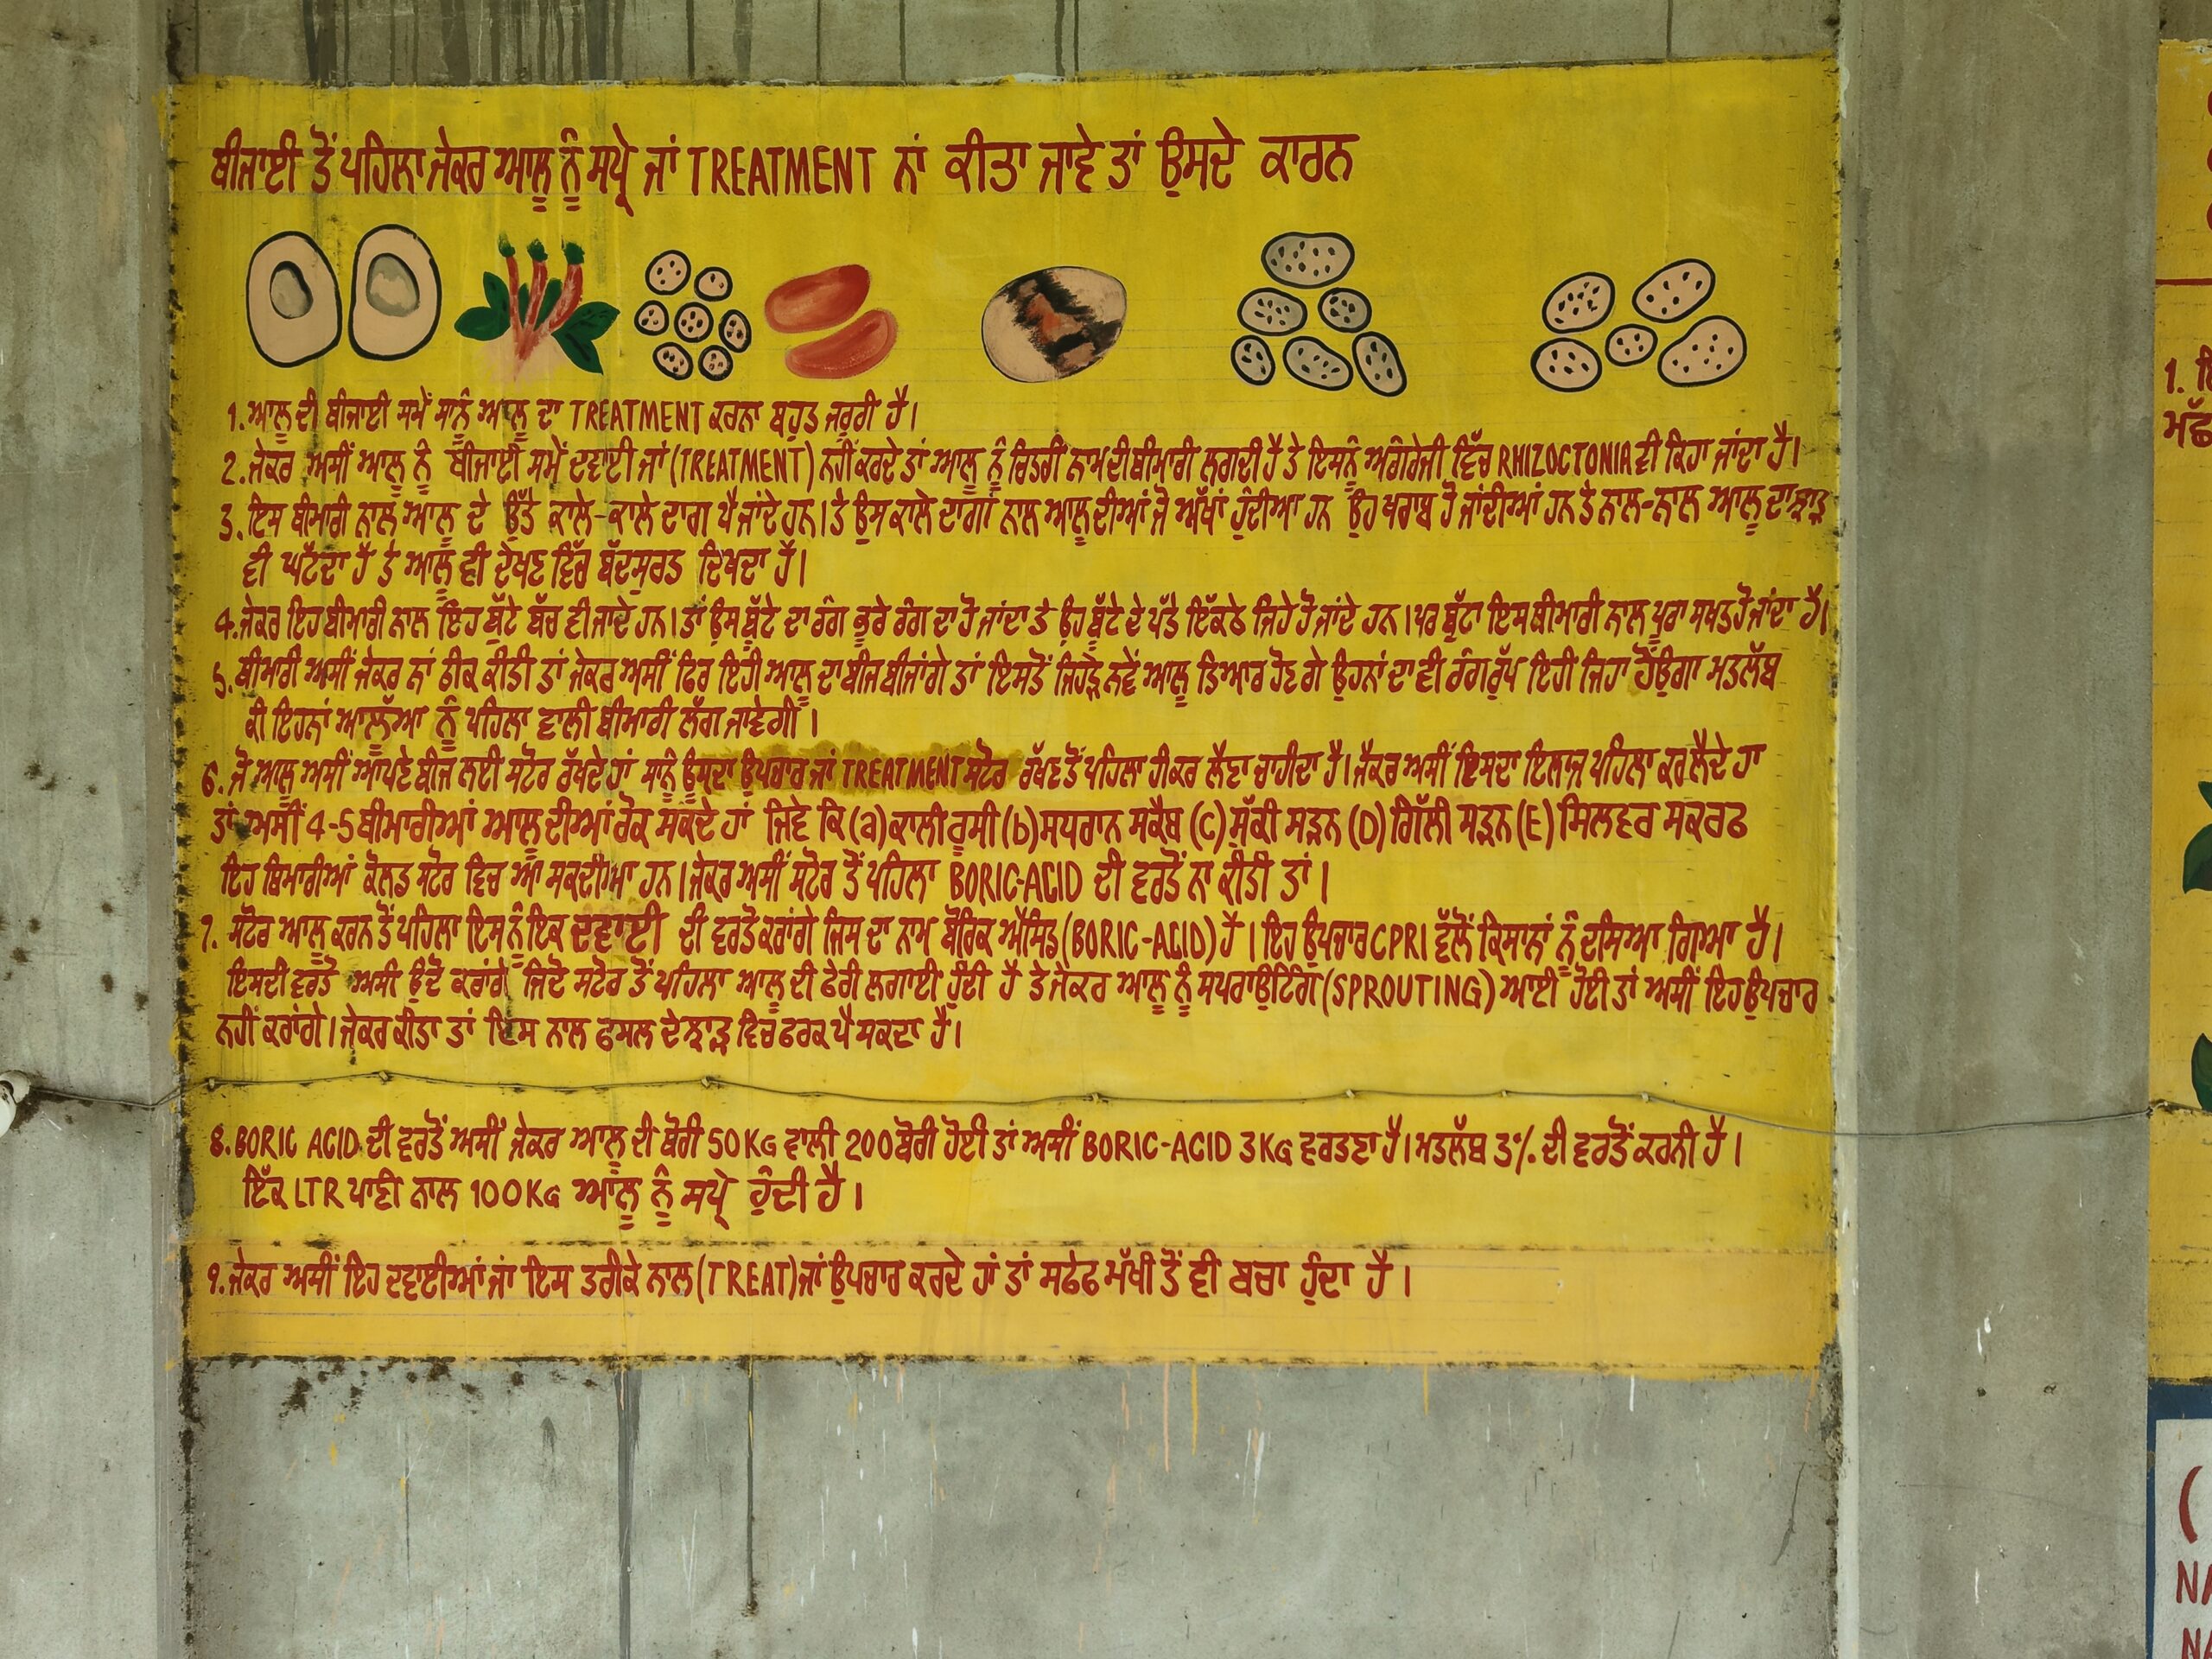 ਬੀਜਾਈ ਤੋਂ ਪਹਿਲਾ ਜੇਕਰ ਆਲੂ ਨੂੰ ਸਪ੍ਰੇ ਜਾਂ TREATMENT ਨਾਂ ਕੀਤਾ ਜਾਵੇ ਤਾਂ ਉਸਦੇ ਕਾਰਨ
1. ਆਲੂ ਦੀ ਬੀਜਾਈ ਸਮੇਂ ਸਾਨੂੰ ਆਲੂ ਦਾ TREATMENT ਕਰਨਾ ਬਹੁਤ ਜਰੂਰੀ ਹੈ।
2. ਜੇਕਰ ਅਸੀਂ ਆਲੂ ਨੂੰ ਬੀਜਾਈ ਸਮੇਂ ਦਵਾਈ ਜਾਂ (TREATMENT) ਨਹੀਂ ਕਰਦੇ ਤਾਂ ਆਲੂ ਨੂੰ ਚਿਤਰੀ ਨਾਮ ਦੀ ਬੀਮਾਰੀ ਲਗਦੀ ਹੈ ਤੇ ਇਸਨੂੰ ਅੰਗਰੇਜੀ ਵਿੱਚ RHIZOCTONIA ਵੀ ਕਿਹਾ ਜਾਂਦਾ ਹੈ।
3. ਇਸ ਬੀਮਾਰੀ ਨਾਲ ਆਲੂ ਦੇ ਉੱਤੇ ਕਾਲੇ-ਕਾਲੇ ਦਾਗ ਪੈ ਜਾਂਦੇ ਹਨ। ਤੇ ਉਸ ਕਾਲੇ ਦਾਗਾਂ ਨਾਲ ਆਲੂ ਦੀਆਂ ਜੋ ਅੱਖਾਂ ਹੁੰਦੀਆ ਹਨ ਉਹ ਖਰਾਬ ਹੋ ਜਾਂਦੀਆਂ ਹਨ ਤੇ ਨਾਲ-ਨਾਲ ਆਲੂ ਦਾ ਝਾੜ
ਵੀ ਘੱਟਦਾ ਹੈ ਤੇ ਆਲੂ ਵੀ ਦੇਖਣ ਵਿੱਚ ਬੱਦਸੁਰਤ ਦਿਖਦਾ ਹੈ।
4. ਜੇਕਰ ਇਹ ਬੀਮਾਰੀ ਨਾਲ ਇਹ ਬੁੱਟੇ ਬੱਚ ਵੀ ਜਾਂਦੇ ਹਨ। ਤਾਂ ਉਸ ਬੁੱਟੇ ਦਾ ਰੰਗ ਭੂਰੇ ਰੰਗ ਦਾ ਹੋ ਜਾਂਦਾ ਤੇ ਉਹ ਬੁੱਟੇ ਦੇ ਪੱਤੇ ਇੱਕਠੇ ਜਿਹੇ ਹੋ ਜਾਂਦੇ ਹਨ। ਪਰ ਬੁੱਟਾ ਇਸ ਬੀਮਾਰੀ ਨਾਲ ਪੂਰਾ ਸਖਤ ਹੋ ਜਾਂਦਾ ਹੈ।
5. ਬੀਮਾਰੀ ਅਸੀਂ ਜੇਕਰ ਨਾਂ ਠੀਕ ਕੀਤੀ ਤਾਂ ਜੇਕਰ ਅਸੀਂ ਫਿਰ ਇਹੀ ਆਲੂ ਦਾ ਬੀਜ ਬੀਜਾਂਗੇ ਤਾਂ ਇਸਤੋਂ ਜਿਹੜੇ ਨਵੇਂ ਆਲੂ ਤਿਆਰ ਹੋਣਗੇ ਉਹਨਾਂ ਦਾ ਵੀ ਰੰਗ ਰੁੱਪ ਇਹੀ ਜਿਹਾ ਹੋਉਗਾ ਮਤਲੱਬ
ਕੀ ਇਹਨਾਂ ਆਲੂੱਆ ਨੂੰ ਪਹਿਲਾ ਵਾਲੀ ਬੀਮਾਰੀ ਲੱਗ ਜਾਵੇਗੀ।
6. ਜੋ ਆਲੂ ਅਸੀਂ ਆਪਣੇ ਬੀਜ ਲਈ ਸਟੋਰ ਰੱਖਦੇ ਹਾਂ ਸਾਨੂੰ ਉਸਦਾ ਉਪਚਾਰ ਜਾਂ TREATMENT ਸਟੋਰ ਰੱਖਣ ਤੋਂ ਪਹਿਲਾ ਹੀ ਕਰ ਲੈਣਾ ਚਾਹੀਦਾ ਹੈ। ਜੇਕਰ ਅਸੀਂ ਇਸਦਾ ਇਲਾਜ ਪਹਿਲਾ ਕਰ ਲੈਂਦੇ ਹਾ
ਤਾਂ ਅਸੀਂ 4-5 ਬੀਮਾਰੀਆਂ ਆਲੂ ਦੀਆਂ ਰੋਕ ਸਕਦੇ ਹਾਂ ਜਿਵੇ ਕਿ (a) ਕਾਲੀ ਰੂਸੀ (b) ਸਧਰਾਨ ਸਕੈਬ (C) ਸੁੱਕੀ ਸੜ੍ਹਨ (D) ਗਿੱਲੀ ਸੜ੍ਹਨ (E) ਸਿਲਵਰ ਸਕਰਫ
ਇਹ ਬਿਮਾਰੀਆਂ ਕੋਲਡ ਸਟੋਰ ਵਿਚ ਆ ਸਕਦੀਆ ਹਨ। ਜੇਕਰ ਅਸੀਂ ਸਟੋਰ ਤੋਂ ਪਹਿਲਾ BORIC-ACID ਦੀ ਵਰਤੋਂ ਨਾ ਕੀਤੀ ਤਾਂ।
7. ਸਟੋਰ ਆਲੂ ਕਰਨ ਤੋਂ ਪਹਿਲਾ ਇਸ ਨੂੰ ਇਕ ਦਵਾਈ ਦੀ ਵਰਤੋ ਕਰਾਂਗੇ ਜਿਸ ਦਾ ਨਾਮ ਬੋਰਿਕ ਐਸਿਡ (BORIC-ACID) ਹੈ। ਇਹ ਉਪਚਾਰ CPRI ਵੱਲੋਂ ਕਿਸਾਨਾਂ ਨੂੰ ਦਸਿਆ ਗਿਆ ਹੈ।
ਇਸਦੀ ਵਰਤੋ ਅਸੀ ਉਦੋ ਕਰਾਂਗੇ ਜਿਦੋ ਸਟੋਰ ਤੋਂ ਪਹਿਲਾ ਆਲੂ ਦੀ ਢੇਰੀ ਲਗਾਈ ਹੁੰਦੀ ਹੈ ਤੇ ਜੇਕਰ ਆਲੂ ਨੂੰ ਸਪਰਾਉਟਿੰਗ (SPROUTING) ਆਈ ਹੋਈ ਤਾਂ ਅਸੀਂ ਇਹ ਉਪਚਾਰ
ਨਹੀਂ ਕਰਾਂਗੇ। ਜੇਕਰ ਕੀਤਾ ਤਾਂ ਇਸ ਨਾਲ ਫਸਲ ਦੇ ਝਾੜ ਵਿਚ ਫਰਕ ਪੈ ਸਕਦਾ ਹੈ।
8. BORIC ACID ਦੀ ਵਰਤੋਂ ਅਸੀਂ ਜੇਕਰ ਆਲੂ ਦੀ ਬੋਰੀ 50KG ਵਾਲੀ 200 ਬੋਰੀ ਹੋਈ ਤਾਂ ਅਸੀਂ BORIC-ACID 3KG ਵਰਤਣਾ ਹੈ। ਮਤਲੱਬ 3% ਦੀ ਵਰਤੋਂ ਕਰਨੀ ਹੈ।
ਇੱਕ LTR ਪਾਣੀ ਨਾਲ 100KG ਆਲੂ ਨੂੰ ਸਪ੍ਰੇ ਹੁੰਦੀ ਹੈ।
9. ਜੇਕਰ ਅਸੀਂ ਇਹ ਦਵਾਈਆਂ ਜਾਂ ਇਸ ਤਰੀਕੇ ਨਾਲ (TREAT) ਜਾਂ ਉਪਚਾਰ ਕਰਦੇ ਹਾਂ ਤਾਂ ਸਫੇਫ ਮੱਖੀ ਤੋਂ ਵੀ ਬਚਾ ਹੁੰਦਾ ਹੈ।